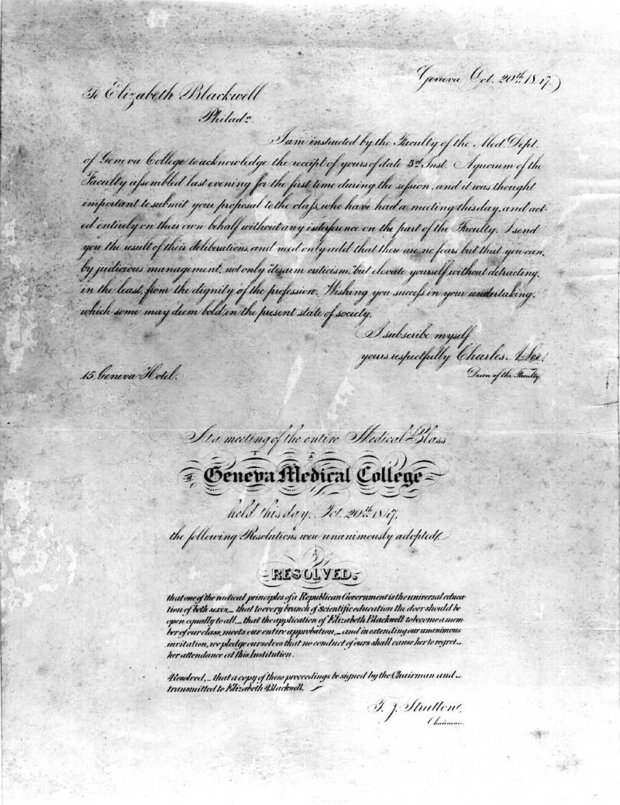 Geneva Oct. 20th 1847.
To Elizabeth Blackwell
Philada.
I am instructed by the Faculty of the Med. Dept.
of Geneva College to acknowledge the receipt of yours of date 3d. Inst. A quorum of the
Faculty assembled last evening for the first time during the session, and it was thought
important to submit your proposal to the class, who have had a meeting this day, and act-
ed entirely on their own behalf without any interference on the part of the Faculty. I send
you the result of their deliberations, and need only add that there are no fears but that you can,
by judicious management, not only disarm criticism, but elevate yourself without detracting,
in the least, from the dignity of the profession. Wishing you success in your undertaking,
which some may deem bold, in the present state of society.
I subscribe myself
yours respectfully Charles A. Lee.
15 Geneva Hotel. Dean of the Faculty
At a meeting of the entire Medical Class
of
Geneva Medical College
held this day, Oct. 20th 1847,
the following Resolutions were unanimously adopted.
RESOLVED,
that one of the radical principles of a Republican Government is the universal educa-
tion of both sexes, that to every branch of scientific education the door should be
open equally to all, that the application of Elizabeth Blackwell to become a mem-
ber of our class, meets our entire approbation, and in extending our unanimous
invitation, we pledge ourselves that no conduct of ours shall cause her to regret
her attendance at this Institution.
Resolved, that a copy of these proceedings be signed by the Chairman and
transmitted to Elizabeth Blackwell.
T. J. Stratton
Chairman